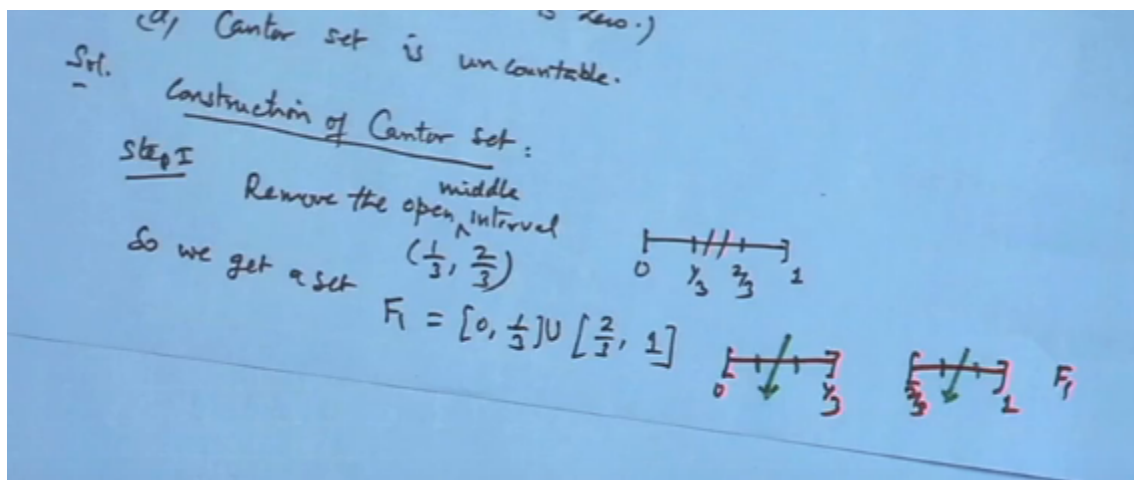 is zero.)
(d) Cantor set is uncountable.
Sol.
Construction of Cantor set :
Step I
Remove the open middle interval
(1/3, 2/3)
0 1/3 2/3 1
So we get a set
F1 = [0, 1/3] U [2/3, 1]
0 1/3 2/3 1 F1